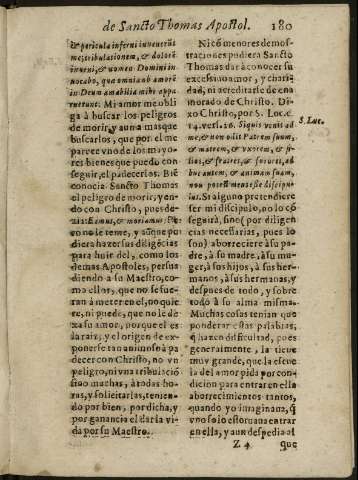 de Sancto Thomas Apostol. 180
& pericula inferni inuenerũt
me, tribulationem, & dolorẽ
inueni, & nomen Domini in
uocabo, quæ omnia ob amorẽ
in Deum amabilia mihi appa
ruerunt. Mi amor me obli
ga à buscar los peligros
de morir, y aun a mas que
buscarlos, que por el me
parece vno de los mayo-
res bienes que puedo con
seguir, el padecerlos. Biẽ
conocia Sancto Thomas
el peligro de morir, yen-
do con Christo, pues de-
zia: Eamus, & moriamur: Pe
ro no le teme, y aũque po
diera hazer sus diligẽcias
para huir del, como los
demas Apostoles, persua
diendo a su Maestro, co-
mo ellos, que no se fue-
ran à meter en el, no quie
re, ni puede, que no le de
xa su amor, porque el es
la raiz, y el origen de ex-
ponerse tan animoso à pa
decer con Christo, no vn
peligro, ni vna tribulaciõ
sino muchas, à todas ho-
ras, y solicitarlas, tenien-
do por bien, por dicha, y
por ganancia el dar la vi-
da por su Maestro.
Ni cõ menores demos-
traciones pudiera Sancto
Thomas dar à conocer su
excessiuo amor, y chari-
dad, ni acreditarse de ena
morado de Christo. Di-
xo Christo, por S. Luc. c.
14. vers. 26. Siquis venit ad
me, & non odit Patrem suum,
& matrem, & vxorem, & fi-
lios, & fratres, & sorores, ad
huc autem, & animam suam,
non potest meus esse discipu-
lus. Si alguno pretendiere
ser mi discipulo, no lo cõ
seguirà, sino (por diligen
cias necessarias, pues lo
son) aborreciere à su pa-
dre, à su madre, à su mu-
ger, à sus hijos, à sus her-
manos, à sus hermanas, y
despues de todo, y sobre
todo à su alma misma.
Muchas cosas tenian que
ponderar estas palabras,
q̃ hazen dificultad, pues
generalmente, la tiene
muy grande, que la escue
la del amor pida por con
dicion para entrar en ella
aborrecimientos tantos,
quando yo imaginaua, q̃
vno solo estoruaua entrar
en ella, y aun despedia al
S. Luc.
Z 4
que